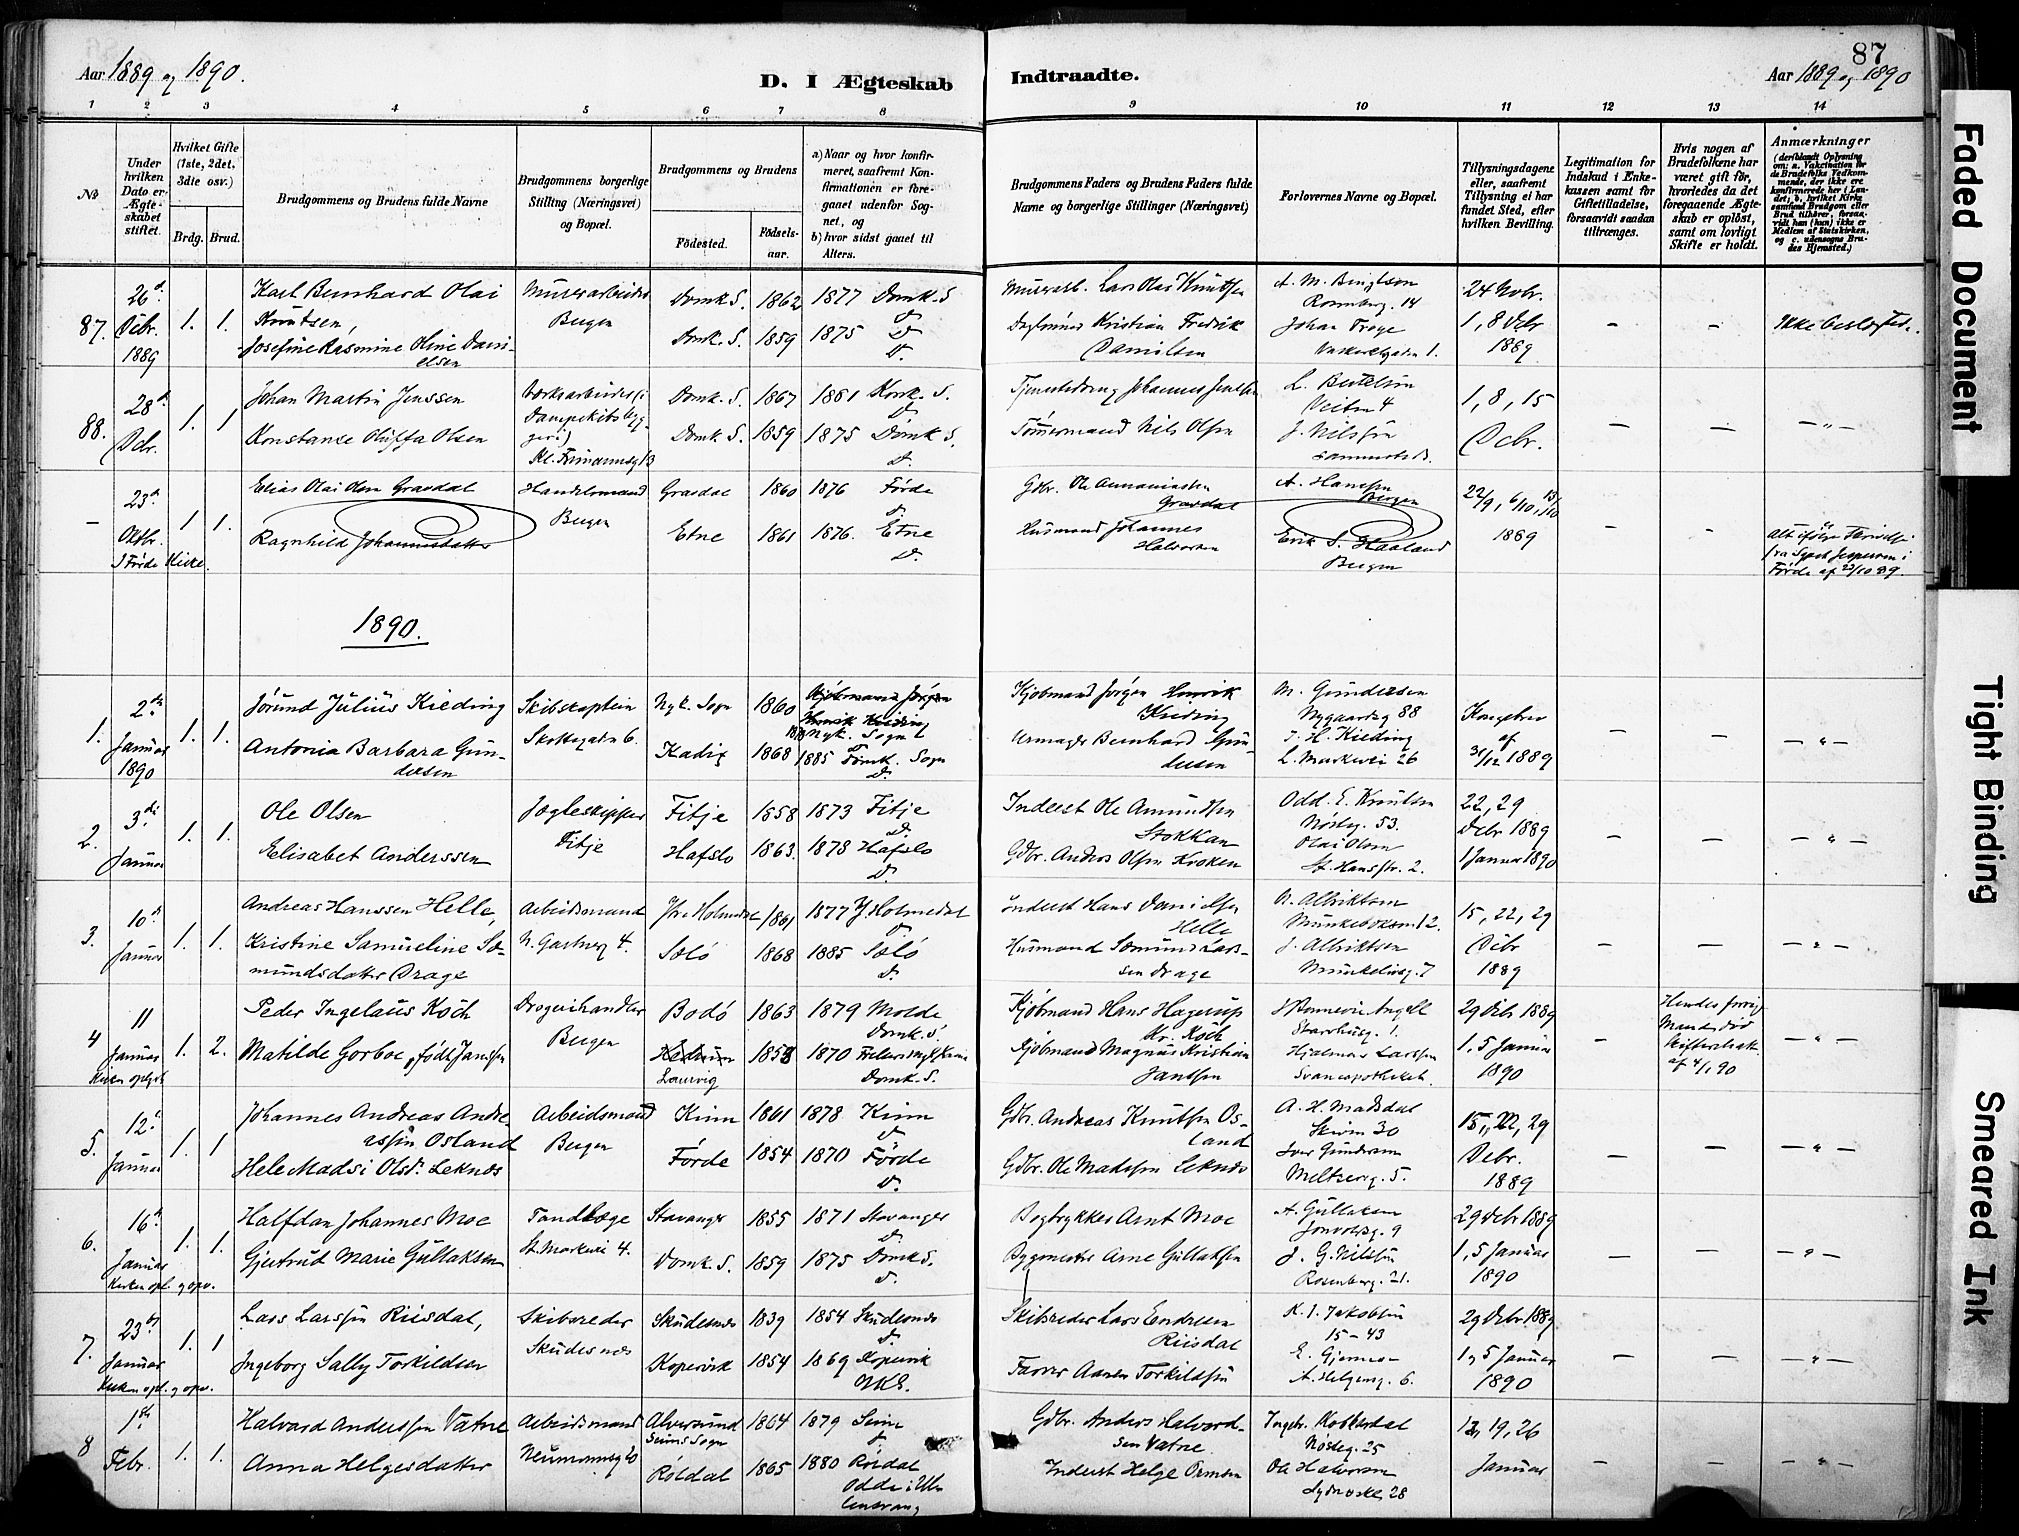 Aar 1889 og 1890.
D. I Ægteskab
Indtraadte.
Aar 1889 og 1890
87
1 2 3 4 5 6 7 8
9 10 11 12 13 14
No
Under hvilken Dato er Ægteskabet stiftet.
Hvilket Gifte (1ste, 2det, 3die osv.)
Brdg. Brud.
Brudgommens og Brudens fulde Navne
Brudgommens borgerlige Stilling (Næringsvei) og Bopæl.
Brudgommens og Brudens
Fødested.
Fødselsaar.
a) Naar og hvor konfirmeret, saafremt Konfirmationen er foregaaet udenfor Sognet, og
b) hvor sidst gaaet til Alters.
Brudgommens Faders og Brudens Faders fulde Navne og borgerlige Stillinger (Næringsvei)
Forlovernes Navne og Bopæl.
Tillysningsdagene eller, saafremt Tillysning ei har fundet Sted, efter hvilken Bevilling.
Legitimation for Indskud i Enkekassen samt for Giftetilladelse, forsaavidt saadan tiltrænges.
Hvis nogen af Brudefolkene har været gift før, hvorledes da det foregaaende Ægteskab er opløst, samt om lovligt Skifte er holdt.
Anmærkninger
(deriblandt Oplysning om: a. Vakcination for de Brudefolks Vedkommende, der ikke ere konfirmerede her i Landet; b. hvilket Kirkesamfund Brudgom eller Brud tilhører, forsaavidt han (hun) ikke er Medlem af Statskirken, og c. udensogns Brudes Hjemsted.)
87. 26d. Debr. 1889 1. 1.
Karl Bernhard Olai Knutsen, Murerarbeider Bergen Domk. S. 1862 1877 Domk. S. D
Josefine Rasmine Oline Danielsen Domk. S. 1859 1875 D D.
Murerarb. Lars Olai Knutsen
Kristian Fredrik Danielsen
A. M. Rosenberg. 14
Johan Troye 1.
24 Novbr. 1, 8 Debr 1889
– – Ikke beslægtede.
88. 28d Debr. 1. 1
Johan Martin Jenssen Domk. S. 1867 1881 Kork. S. D
Konstance Olussa Olsen Domk. S. 1859 1875 Domk S. D.
Tømmermand Nils Olsen
J. Nilssen
1, 8, 15 Debr.
– – – " –
– 23d Oktbr. I Førde Kirke. 1 1.
Elias Olai Olsen Gravdal Handelsmand Bergen Gravdal 1860 1876 Førde D
Ragnhild Johannesdatter Etne 1861 1876. Etne D.
Gdbr. Ole Gravdal
Husmand Johannes Halvorsen
A. Hanssen Bergen
Erik S. Haaland Bergen
22/9, 6/10, 13/10 1889
Førde af 23/10 89.
1890.
1. 2den Januar 1890 1. 1.
Jørund Julius Kielding Skibskaptein Nyk. Sogn 1860 Nyk. Sogn
Antonia Barbara Gundersen Kadix 1868 1885 Domk. Sogn D.
Kjøbmand Jørgen Henrik Kielding
Urmager Bernhard Gundersen
M. Gundersen Nygaardsg 88
J. H. Kielding L. Markevei 26
Kongebrev af 31/12 1889
– – – " –
2. 3die Januar 1. 1.
Ole Olsen Jagteskipper Fitje Fitje 1858 1873 Fitje D.
Elisabet Anderssen Hafslo 1863. 1878 Hafslo D.
Inderst Ole Amundsen Stokkan
Gdbr. Anders Olsen Kroken
Odd. E. Knutsen Nøsteg. 53.
Olai Olsen St. Hansstr. 2.
22, 29 Debr 1889 1 Januar 1890
– – – " –
3. 10d Januar 1. 1.
Andreas Hanssen Helle, Arbeidsmand Holmedal 1861 1877 Y. Holmedal D
Kristine Samueline Sæmundsdatter Drage Sølø 1868 1885 Sølø D.
Inderst Hans Danielsen Helle
Husmand Sæmund Larssen Drage
A. Albriktsen 2.
J. Albriktsen Munkelivsg. 7
15, 22, 29 Debr 1889
– – – " –
4 11 Januar 1. 2.
Peder Ingelaus Koch Drogerihandler Bergen Bodø 1863 1879 Molde Domk. S.
Matilde Gorboe, født Janssen Laurvig 1858 1870 Domk. S.
Kjøbmand Hans Hagerup Kr. Koch
Kjøbmand Magnus Kristian Janssen
Angell 1.
Hjalmar Larssen Svaneapotheket.
29 Debr 1889 1, 5 Januar 1890
– Hendes forrige Mand død Skifteattest af 4/1 90 – " –
5. 12. Januar 1. 1
Johannes Andreas Andreassen Osland Arbeidsmand Bergen Kinn 1861 1878 Kinn D
Hele Madsi Olsd. Leknæs Førde 1854 1870 Førde D.
Gdbr. Andreas Knutsen Osland
Gdbr. Ole Madssen Leknæs
A. H. Madsdal 30
Iver Gundersen Meltzersg. 5.
15, 22, 29 Debr. 1889
– – – " –
6. 16d Januar 1. 1.
Halfdan Johannes Moe Tandlæge St. Markevei 4. Stavanger 1855 1871 Stavanger D.
Gjertrud Marie Gullaksen Domk. S. 1859 1875 Domk S. D.
Bogtrykker Arnt Moe
Bygmester Arne Gullaksen
A. Gullaksen 9
J. G. Nilssen Rosenberg. 21.
29 Debr 1889 1, 5 Januar 1890
– – – " –
7. 23de Januar 1. 1
Lars Larssen Riisdal, Skibsreder Skudesnæs Skudesnæs 1839 1854 Skudesnæs D.
Ingeborg Sally Torkildsen Kopervik 1854 1869 Kopervik
Skibsreder Lars Endresen Riisdal
Farver Aanen Torkildsen
K. I. Jakobsen 15–43
E. Gjermoe A. Helgesg. 6.
29 Debr 1889 1, 5 Januar 1890
– – – " –
8 1ste Febr. 1. 1.
Halvard Anderssen Vatne Arbeidsmand Neumannsg 20 Alversund Seims Sogn 1864 1879 Seim D.
Anna Helgesdatter Røldal 1865 1880 Røldal
Gdbr. Anders Halvordsen Vatne.
Inderst Helge Ormsen
Nøsteg. 25
Ole Halvorsen 28
12, 19, 26 Januar
– – – " –
Faded Document
Tight Binding
Smeared Ink